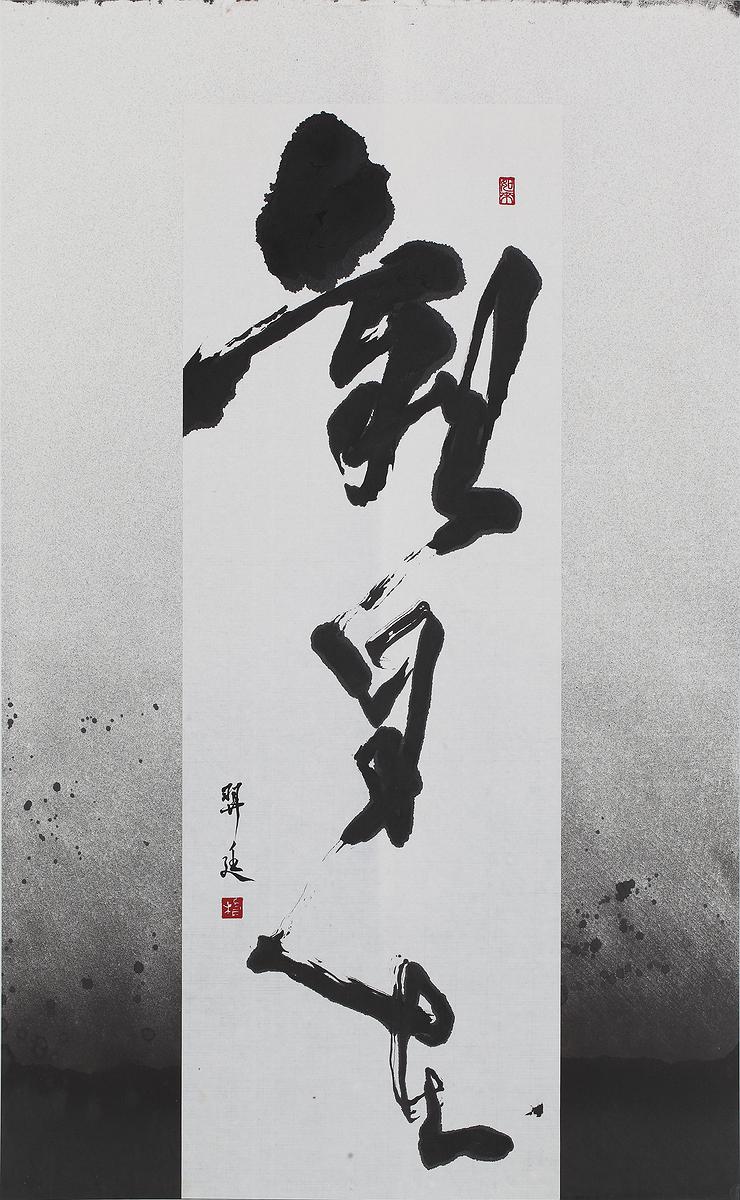 觀自在
羿廷